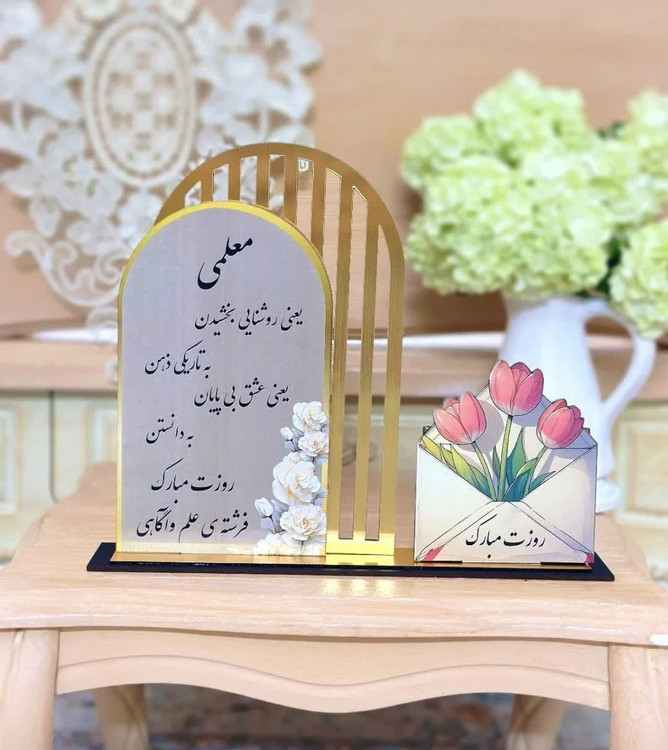 معلمی
یعنی روشنایی بخشیدن
به تاریکی ذهن
یعنی عشق بی پایان
به دانستن
روزت مبارک
فرشته ی علم و آگاهی
روزت مبارک